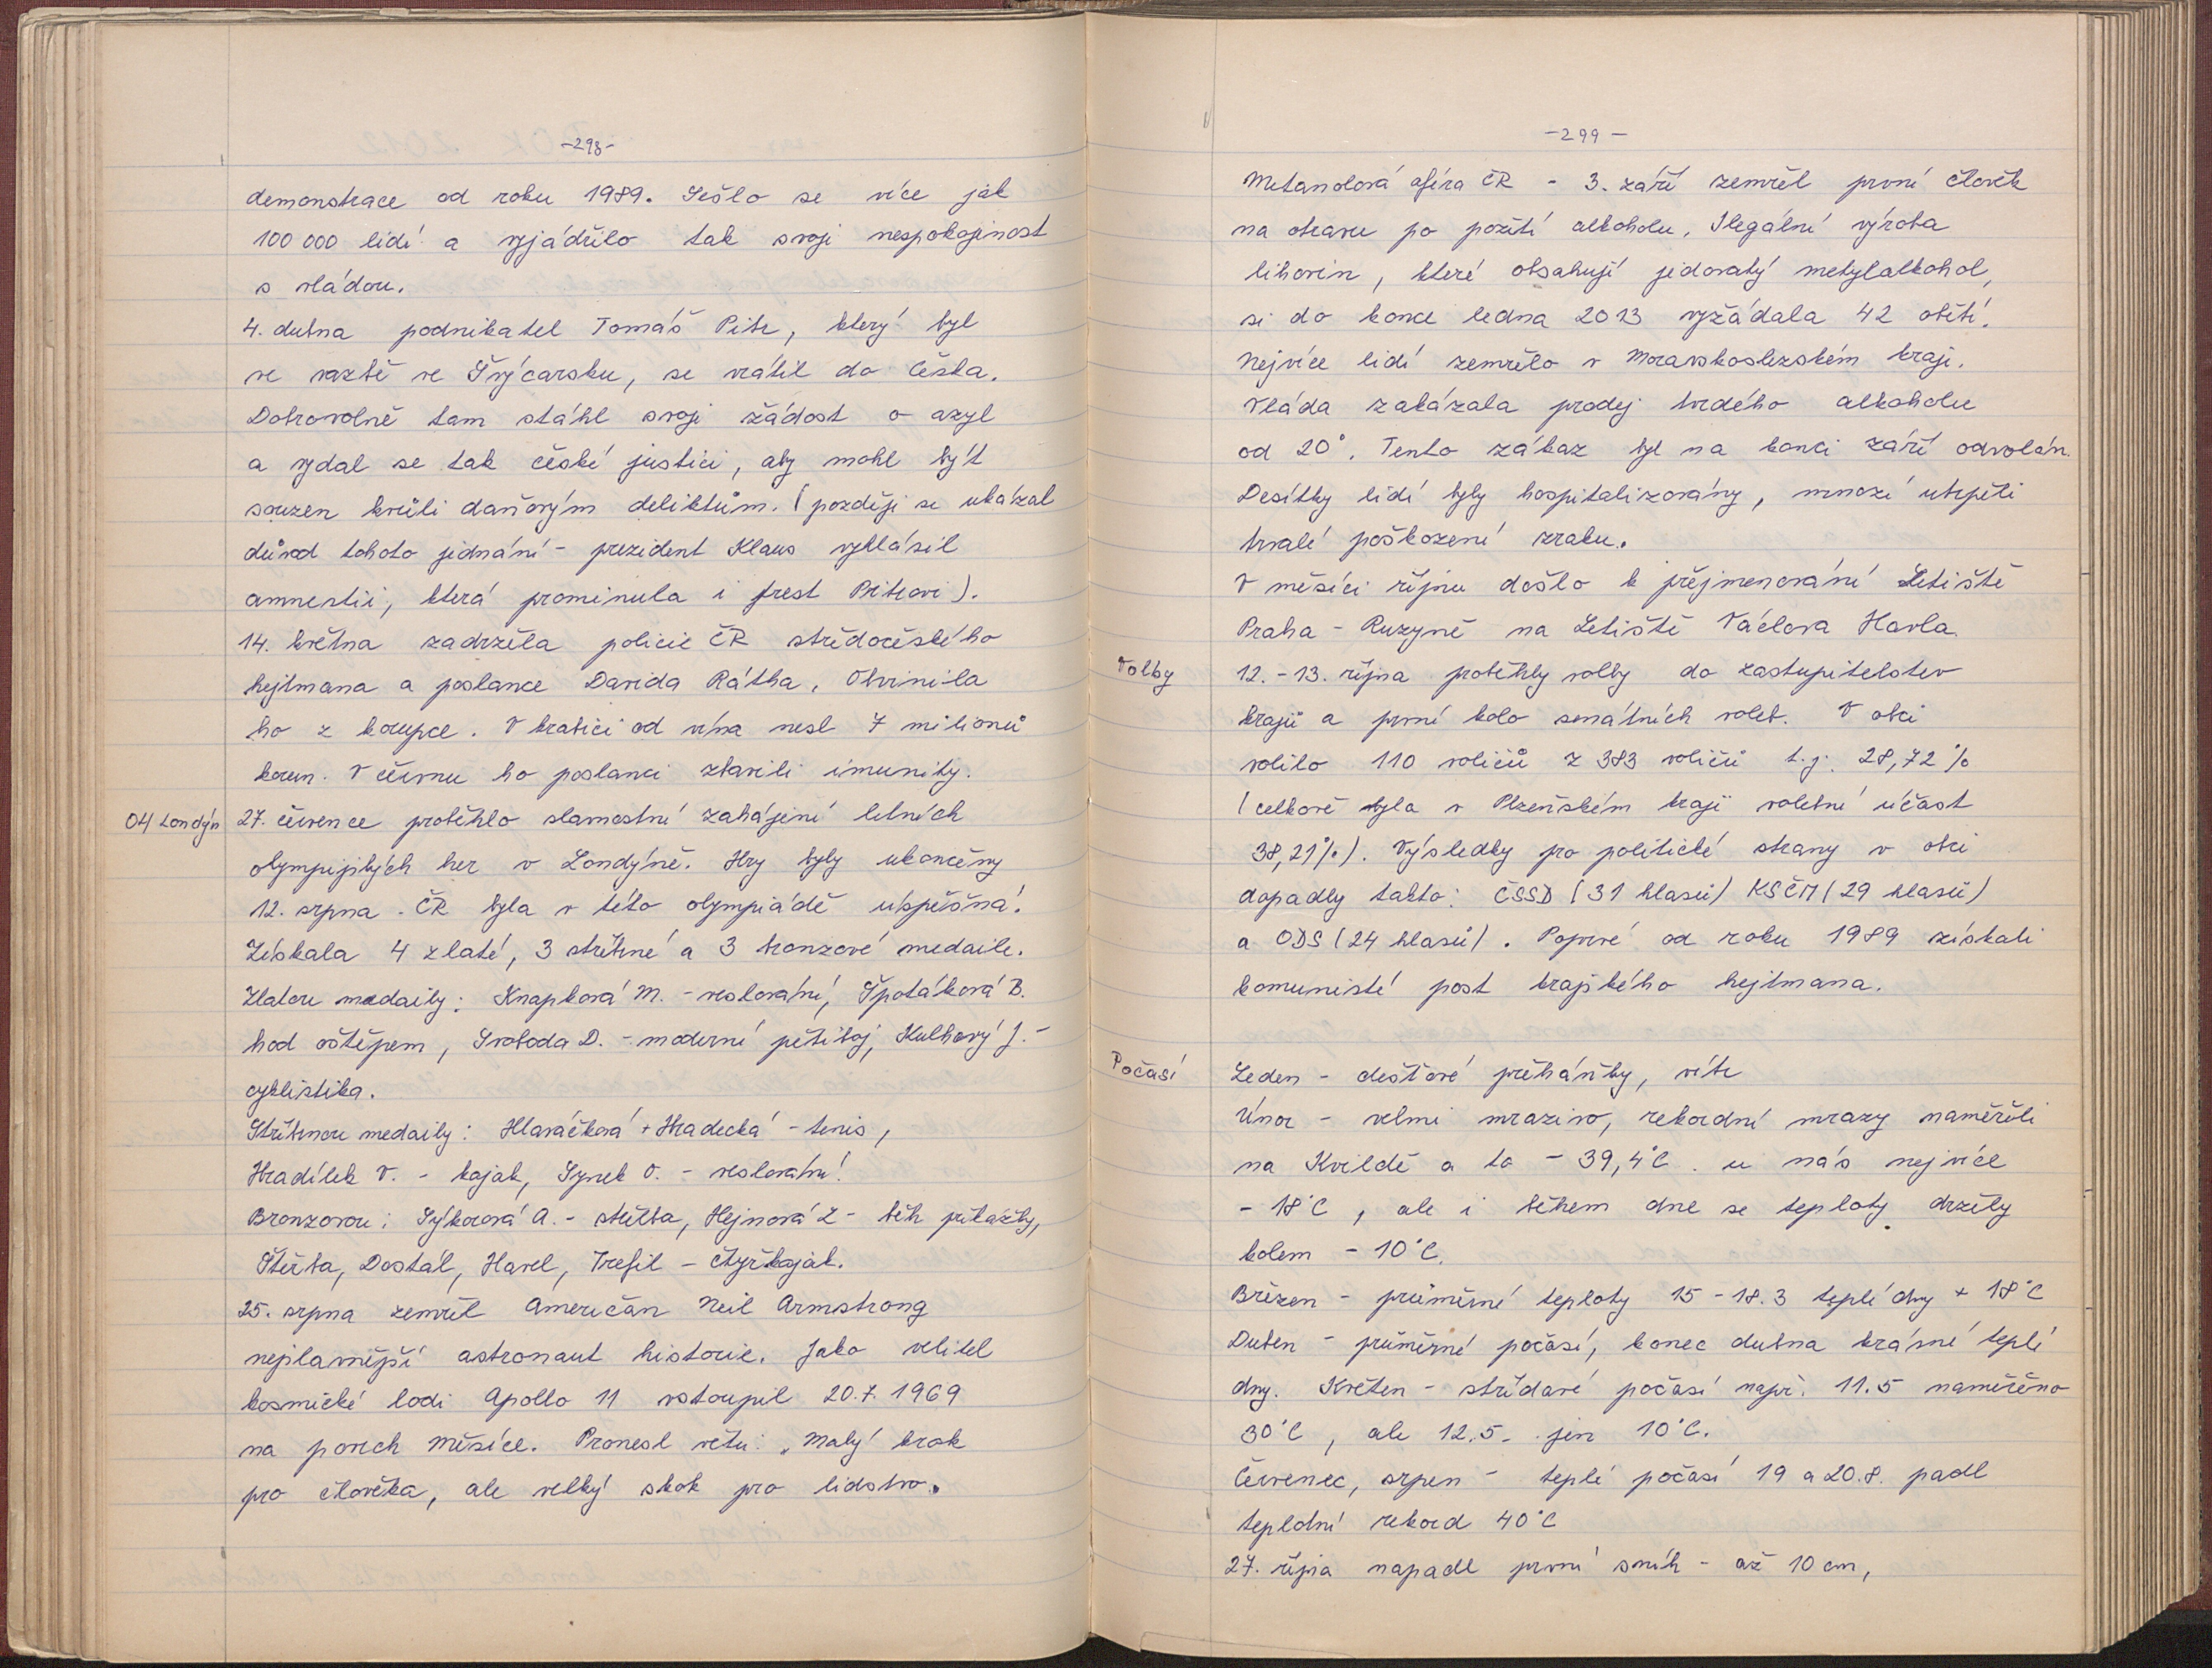 -298-
demonstrace od roku 1989. Sešlo se více jak
100 000 lidí a vyjádřilo tak svoji nespokojenost
s vládou.
4. dubna podnikatel Tomáš Pitr, který byl
ve vazbě ve Švýcarsku, se vrátil do Česka.
Dobrovolně tam stáhl svoji žádost o azyl
a vydal se tak české justici, aby mohl být
souzen kvůli daňovým deliktům. (později se ukázal
důvod tohoto jednání - prezident Klaus vyhlásil
amnestii, která prominula i trest Pitrovi).
14. května zadržela policie ČR středočeského
hejtmana a poslance Davida Rátha. Obvinila
ho z korupce. V krabici od vína nesl 7 milionů
korun. V červnu ho poslanci zbavili imunity.
OH Londýn
27. července proběhlo slavnostní zahájení letních
olympijských her v Londýně. Hry byly ukončeny
12. srpna. ČR byla v této olympiádě úspěšná.
Získala 4 zlaté, 3 stříbrné a 3 bronzové medaile.
Zlatou medaily: Knapková M. - veslování, Špotáková B.
hod oštěpem, Svoboda D. - moderní pětiboj, Kulhavý J. -
cyklistika.
Stříbrnou medaily: Hlaváčková + Hradecká - tenis,
Hradílek V. - kajak, Synek O. - veslování.
Bronzovou: Sýkorová A. - střelba, Hejnová Z - běh překážky,
Štěrba, Dostál, Havel, Trefil - čtyřkajak.
25. srpna zemřel Američan Neil Armstrong
nejslavnější astronaut historie. Jako velitel
kosmické lodi Apollo 11 vstoupil 20.7. 1969
na povrch Měsíce. Pronesl větu: „Malý krok
pro člověka, ale velký skok pro lidstvo.
-299-
Metanolová aféra ČR - 3. září zemřel první člověk
na otravu po požití alkoholu. Ilegální výroba
lihovin, které obsahují jedovatý metylalkohol,
si do konce ledna 2013 vyžádala 42 obětí.
Nejvíce lidí zemřelo v Moravskoslezském kraji.
Vláda zakázala prodej tvrdého alkoholu
od 20°. Tento zákaz byl na konci září odvolán.
Desítky lidí byly hospitalizovány, mnozí utrpěli
trvalé poškození zraku.
V měsíci říjnu došlo k přejmenování Letiště
Praha - Ruzyně na Letiště Václava Havla.
Volby
12. - 13. října proběhly volby do zastupitelstev
krajů a první kolo senátních voleb. V obci
volilo 110 voličů z 383 voličů t.j. 28,72 %
(celkově byla v Plzeňském kraji volební účast
38,21%). Výsledky pro politické strany v obci
dopadly takto: ČSSD (31 hlasů) KSČM (29 hlasů)
a ODS (24 hlasů). Poprvé od roku 1989 získali
komunisté post krajského hejtmana.
Počasí
Leden - dešťové přeháňky, vítr
Únor - velmi mrazivo, rekordní mrazy naměřili
na Kvildě a to - 39,4°C. u nás nejvíce
- 18°C, ale i během dne se teploty držely
kolem - 10°C.
Březen - průměrné teploty 15 - 18.3 teplé dny + 18°C
Duben - průměrné počasí, konec dubna krásné teplé
dny. Květen - střídavé počasí např. 11.5 naměřeno
30°C, ale 12.5. jen 10°C.
Červenec, srpen - teplé počasí 19 a 20.8. padl
teplotní rekord 40°C
27. října napadl první sníh - až 10 cm,